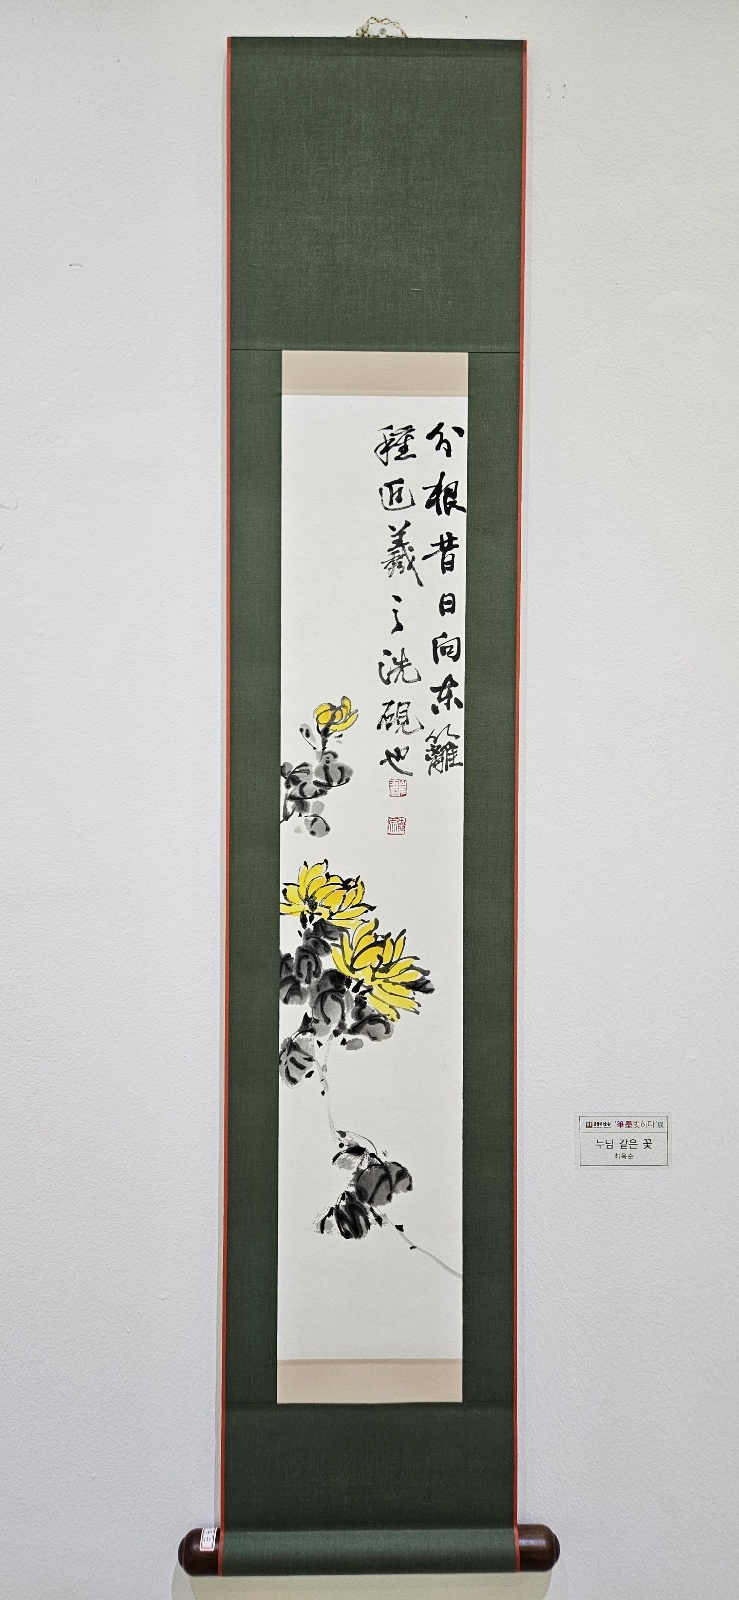 分根昔日向东籬
種近羲之洗硯也
筆墨
누님 같은 꽃
최옥순